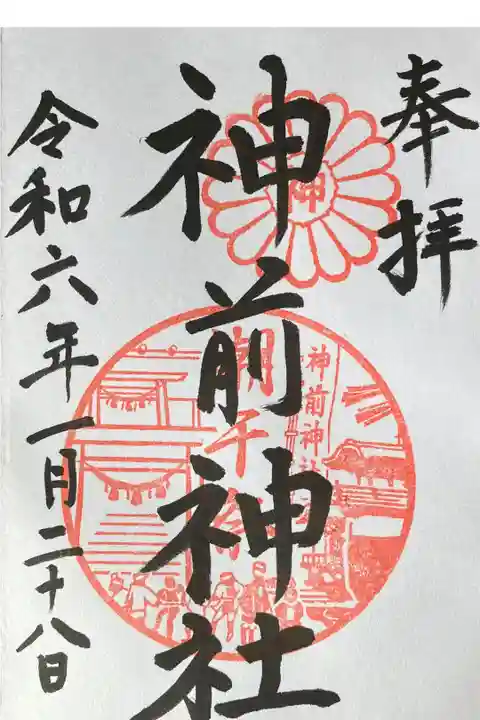 奉拝
神前神社
令和六年一月二十八日
神前神社